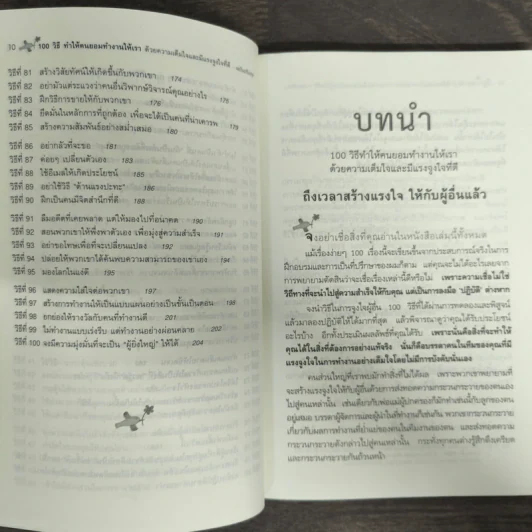 10 100 วิธี ทำให้คนยอมทำงานให้เรา ด้วยความเต็มใจและมีแรงจูงใจที่ดี
วิธีที่ 81 สร้างวิสัยทัศน์ให้เกิดขึ้นกับพวกเขา 174
วิธีที่ 82 อย่ามัวแต่ระแวงว่าคนอื่นวิพากษ์วิจารณ์คุณอย่างไร 176
วิธีที่ 83 ฝึกวิธีการขายให้กับพวกเขา 178
วิธีที่ 84 ยึดมั่นในหลักการที่ถูกต้อง เพื่อจะได้เป็นคนที่น่าเคารพ 179
วิธีที่ 85 สร้างความสัมพันธ์อย่างสม่ำเสมอ 180
วิธีที่ 86 อย่ากลัวที่จะขอ 181
วิธีที่ 87 ค่อยๆ เปลี่ยนตัวเอง 183
วิธีที่ 88 ใช้อีเมลให้เกิดประโยชน์ 185
วิธีที่ 89 อย่าใช้วิธี "ด้านแรงปะทะ" 187
วิธีที่ 90 ฝึกเป็นคนมีจิตสำนึกที่ดี 188
วิธีที่ 91 ลืมอดีตที่เคยพลาด แต่ให้มองไปที่อนาคต 190
วิธีที่ 92 สอนพวกเขาให้พึ่งพาตัวเอง เพื่อมุ่งสู่ความสำเร็จ 191
วิธีที่ 93 อย่าขอโทษเพื่อที่จะเปลี่ยนแปลง 192
วิธีที่ 94 ปล่อยให้พวกเขาได้ค้นพบความสามารถของเขาเอง 194
วิธีที่ 95 มองโลกในแง่ดี 195
วิธีที่ 96 แสดงความใส่ใจต่อพวกเขา 197
วิธีที่ 97 สร้างการทำงานให้เป็นแบบแผนอย่างเป็นขั้นเป็นตอน 198
วิธีที่ 98 ยกย่องให้รางวัลกับคนที่ทำงานดี 201
วิธีที่ 99 ไม่ทำงานแบบเร่งรีบ แต่ทำงานอย่างผ่อนคลาย
วิธีที่ 100 จงมีความมุ่งมั่นที่จะเป็น "ผู้ยิ่งใหญ่" ให้ได้ 204
บทนำ
100 วิธีทำให้คนยอมทำงานให้เรา
ด้วยความเต็มใจและมีแรงจูงใจที่ดี
ถึงเวลาสร้างแรงใจ ให้กับผู้อื่นแล้ว
จงอย่าเชื่อสิ่งที่คุณอ่านในหนังสือเล่มนี้ทั้งหมด
แม้เรื่องง่ายๆ 100 เรื่องนี้จะเขียนขึ้นจากประสบการณ์จริงในการ
ฝึกอบรมและการเป็นที่ปรึกษาของผมก็ตาม แต่คุณจะไม่ได้อะไรเลยจาก
การพยายามตัดสินใจว่าจะเชื่อเรื่องเหล่านี้ดีหรือไม่ เพราะความเชื่อไม่ใช่
วิธีทางที่จะนำไปสู่ความสำเร็จให้กับคุณ แต่เป็นการลงมือ 'ปฏิบัติ' ต่างหาก
จงนำวิธีในการจูงใจผู้อื่น 100 วิธีที่ได้ผ่านการทดลองและพิสูจน์
แล้วมาลองปฏิบัติให้ได้มากที่สุด แล้วพิจารณาดูว่าคุณได้รับประโยชน์
อะไรบ้าง อีกทั้งประเมินผลลัพธ์ที่คุณได้รับ เพราะนั่นคือสิ่งที่จะทำให้
คุณได้ในสิ่งที่ต้องการอย่างแท้จริง นั่นก็คือบรรดาคนในทีมของคุณที่มี
แรงจูงใจในการทำงานอย่างเต็มใจโดยไม่มีการบังคับนั่นเอง
คนส่วนใหญ่ที่เราพบมักทำสิ่งที่ไม่ได้ผล เพราะพวกเขาพยายามที่
จะสร้างแรงจูงใจให้กับผู้อื่นด้วยการส่งทอดความกระวนกระวายของตนเอง
ไปสู่คนเหล่านั้น เช่นเดียวกับพ่อแม่ผู้ปกครองก็มักทำเช่นนี้กับลูกของตน
อยู่เสมอ บรรดาผู้จัดการและผู้นำในที่ทำงานก็เช่นกัน พวกเขากระวนกระวาย
เกี่ยวกับผลการทำงานที่ย่ำแย่ของคนในทีมงานของตน และส่งทอดความ
กระวนกระวายดังกล่าวไปสู่คนเหล่านั้น กระทั่งทุกคนต่างรู้สึกตึงเครียด
และกระวนกระวายกันถ้วนหน้า